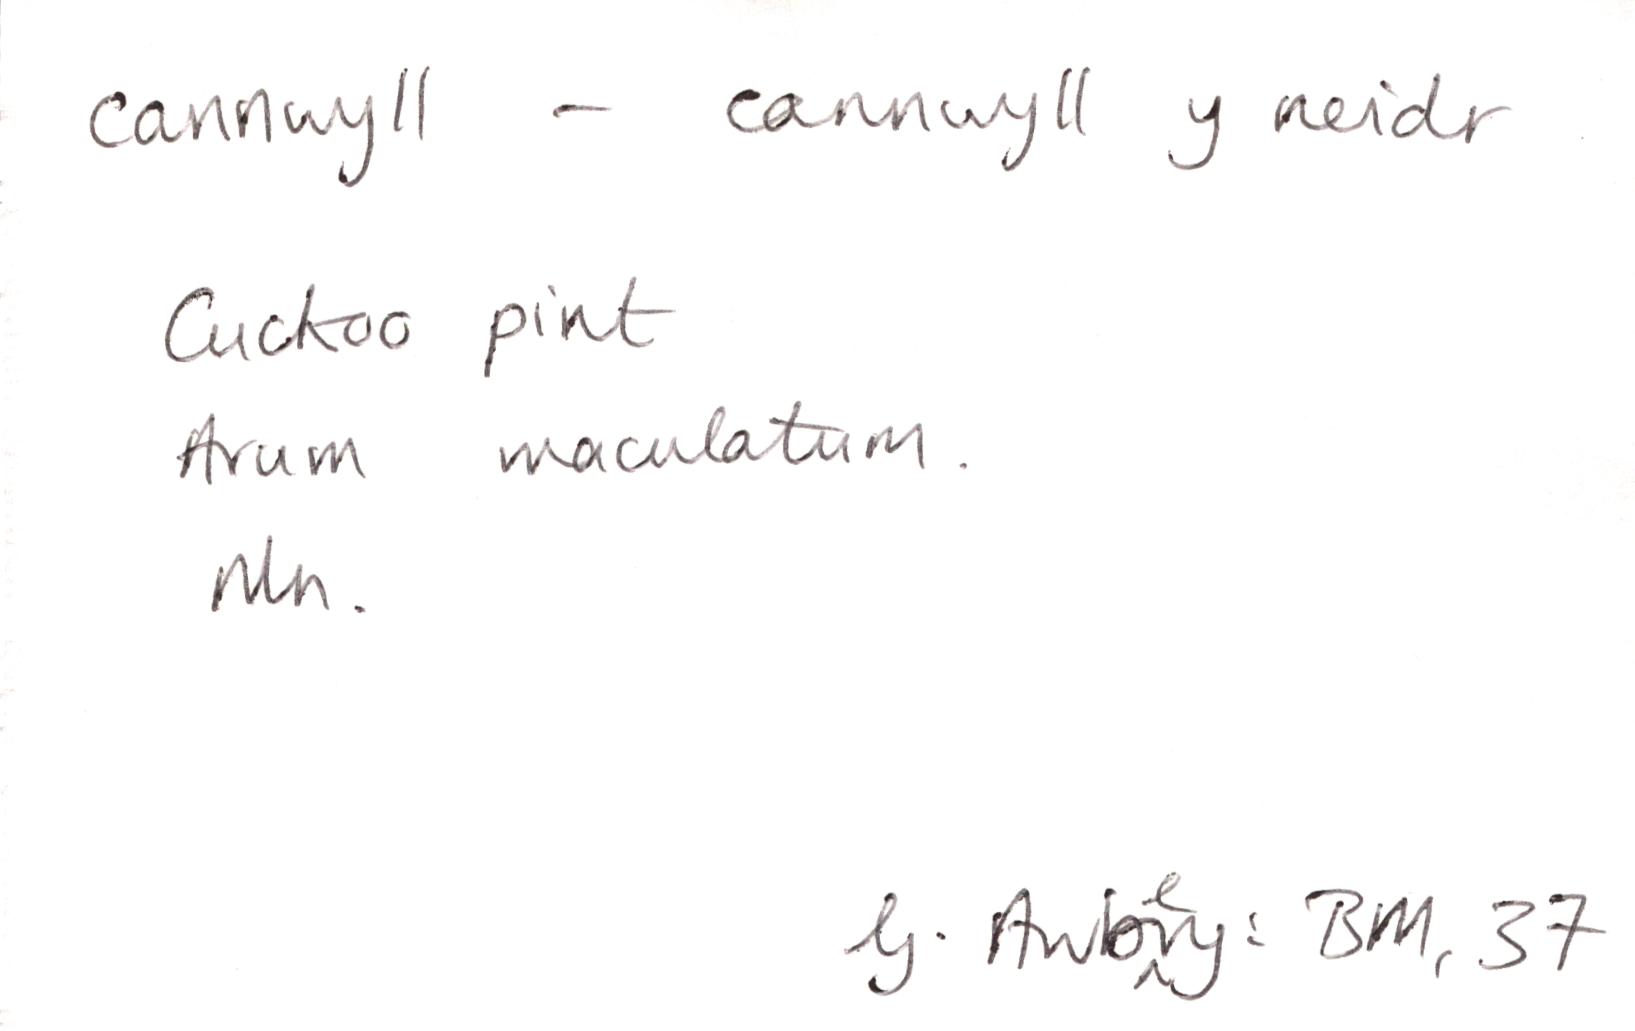 cannwyll - cannwyll y neidr
Cuckoo pint
Arum maculatum.
Nln.
G. Awbery: BM, 37